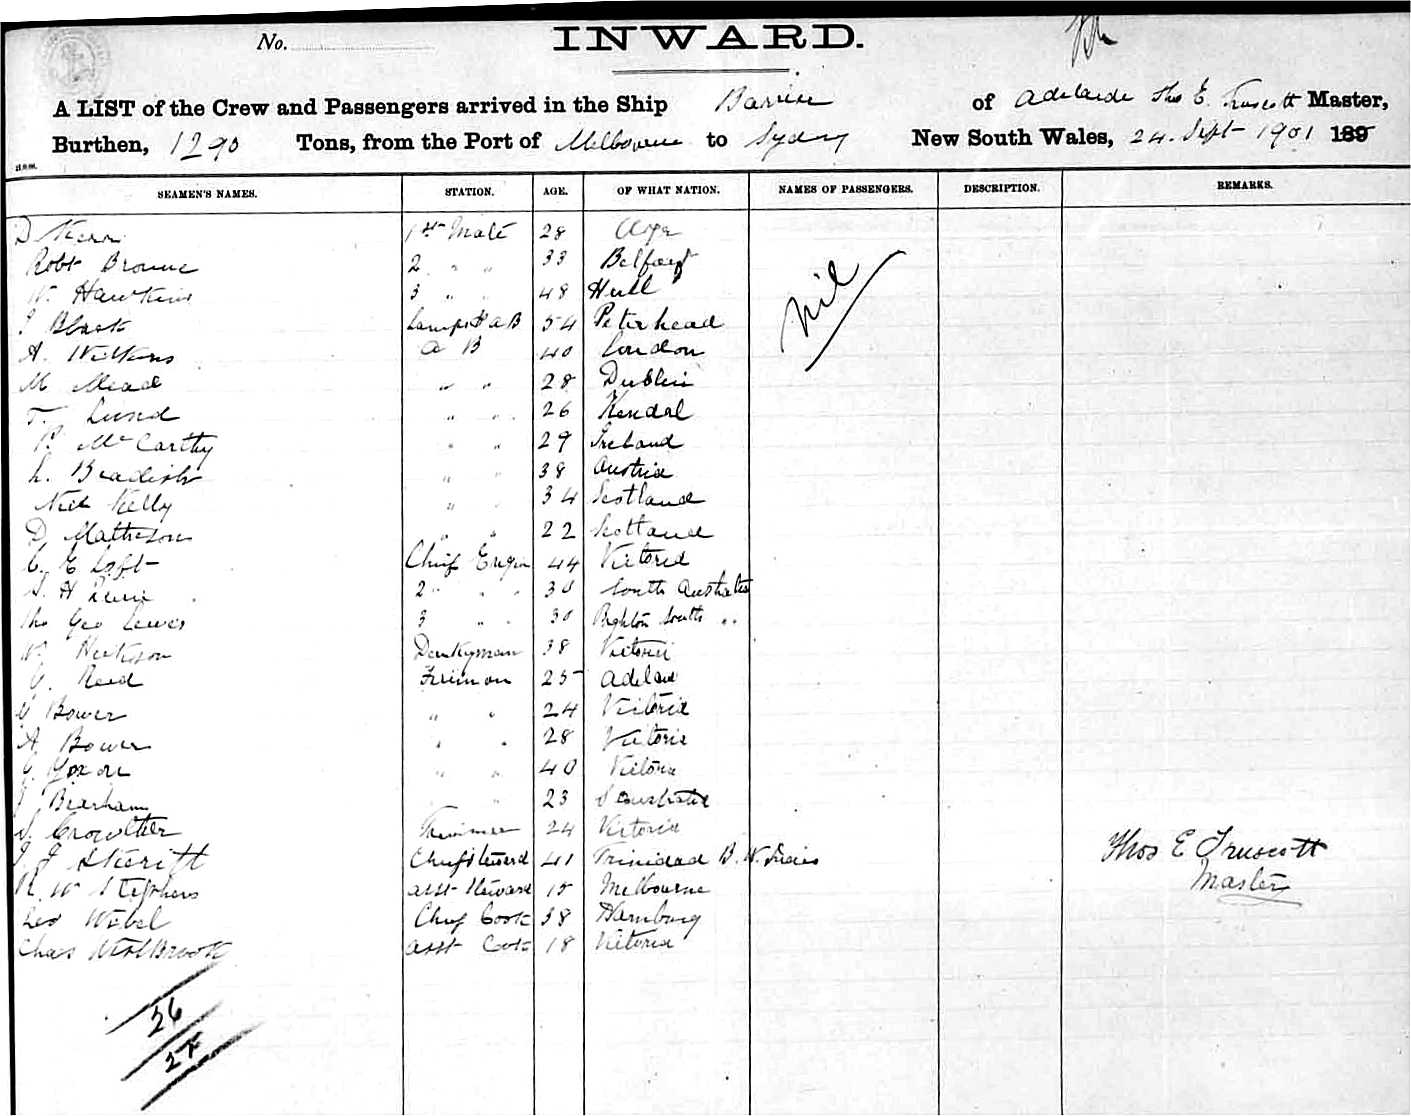 No.
INWARD.
A LIST of the Crew and Passengers arrived in the Ship of Adelaide Thos E. Truscott Master,
Burthen, 1290 Tons, from the Port of Melbourne to Sydney New South Wales, 24. Sept 1901 189
SEAMEN'S NAMES. STATION. AGE. OF WHAT NATION. NAMES OF PASSENGERS. DESCRIPTION. REMARKS.
D Kerr 1st Mate 28
Robt Browne 2 " " 33 Belfast
W. Hawkins 3 " " 48 Hull
J Black Lamps & AB 54 Peterhead
nil
A. Wilkins A B 40 London
M Mead " " 28 Dublin
T. Lund " " 26 Kendal
P. McCarthy " " 29 Ireland
L. " " 38 Austria
Neil Kelly " " 34 Scotland
D Matheson " " 22 Scotland
C. E Loft Chief Engin 44 Victoria
S. H 2 " " 30 South Australia
Tho Geo Lewis 3 " " 30 South "
W. Donkyman 38 Victoria
C. Reid Fireman 25 Adelaid
G Bower " " 24 Victoria
A. Bower " " 28 Victoria
Yoxon " " 40 Victoria
J Bearham " 23 S Australia
S. Crowther Trimmer 24 Victoria
J. J Skeritt Chief Steward 41 Trinidad B. W. Indies
Thos E Truscott
R. W Stephens asst Steward 15 Melbourne
Master
Leo Webel Chief Cook 38 Hamburg
Chas WestBrook asst Cook 18 Victoria
26
27